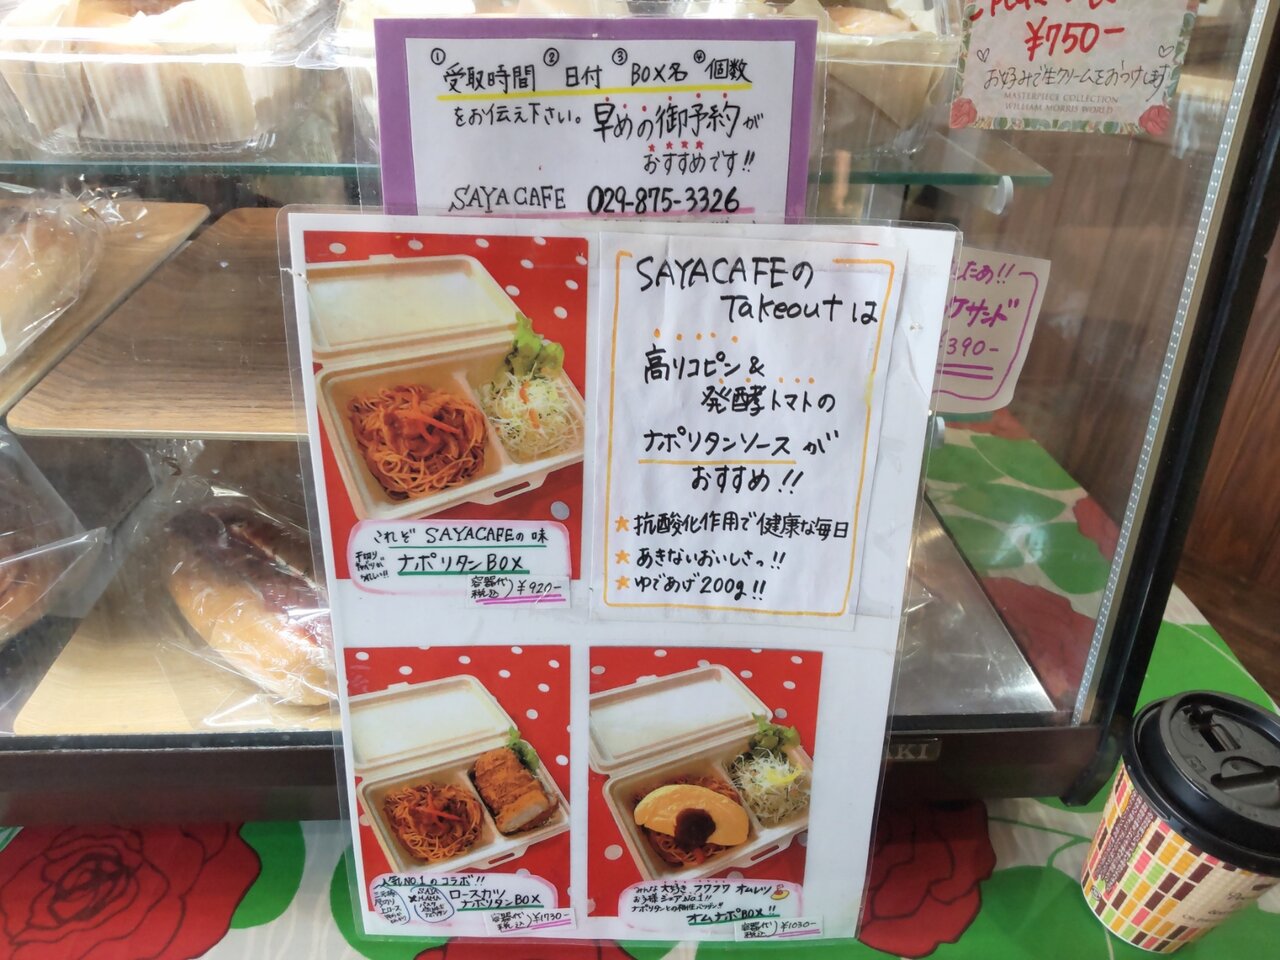 ①受取時間 ②日付 ③BOX名 ④個数
をお伝え下さい。早めの御予約が
おすすめです!!
SAYACAFE 029-875-3326
¥750-
お好みで生クリームをおつけします
MASTERPIECE COLLECTION
WILLIAM MORRIS WORLD
ため!!
ケサンド
¥390-
SAYACAFEの
Takeoutは
高リコピン&
発酵トマトの
ナポリタンソースが
おすすめ!!
★抗酸化作用で健康な毎日
★あきないおいしさっ!!
★ゆであげ200g!!
これぞ SAYACAFEの味
ナポリタンBOX
容器代
税込)¥920-
人気NO.1のコラボ!!
ロースカツ
ナポリタンBOX
容器代
税込)¥1730-
みんな大好き、フワフワ オムレツ
お子様シェアNo.1!!
ナポリタンとの相性バツグン!!
オムナポBOX!!
容器代
税込)¥1030-
AKI